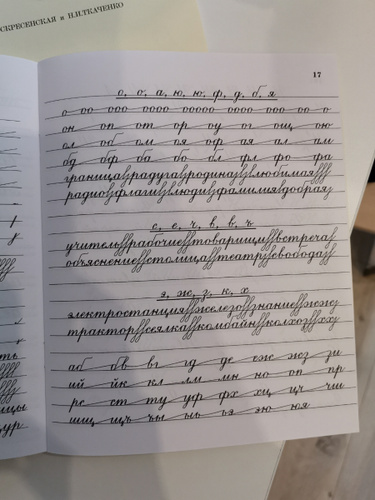 СКРЕСЕНСКАЯ и Н.И.ТКАЧЕНКО
17
о, о, а, ю, ю, ф, д, б, я
о оо ооо оооо ооооо оооо ооо оо о
он оп от ор оу ог ощ ою
ол об ом оя оф ая ал ам
бд бф ба бо бл фл фо фа
граница радуга родина любимая
радио флаги люди фамилия добрая
с, е, ч, в, в, ъ
учитель рабочие товарищи встреча
объяснение столица театр свобода
э, ж, з, к, х
электростанция железо знание жж
трактор сеялка комбайн колхоз хх
аб бв вг гд де еж жз зи
ий йк кл лм мн но оп пр
рс ст ту уф фх хц цч чш
шщ щъ ъы ыь ьэ эю юя
ть
цы
цур